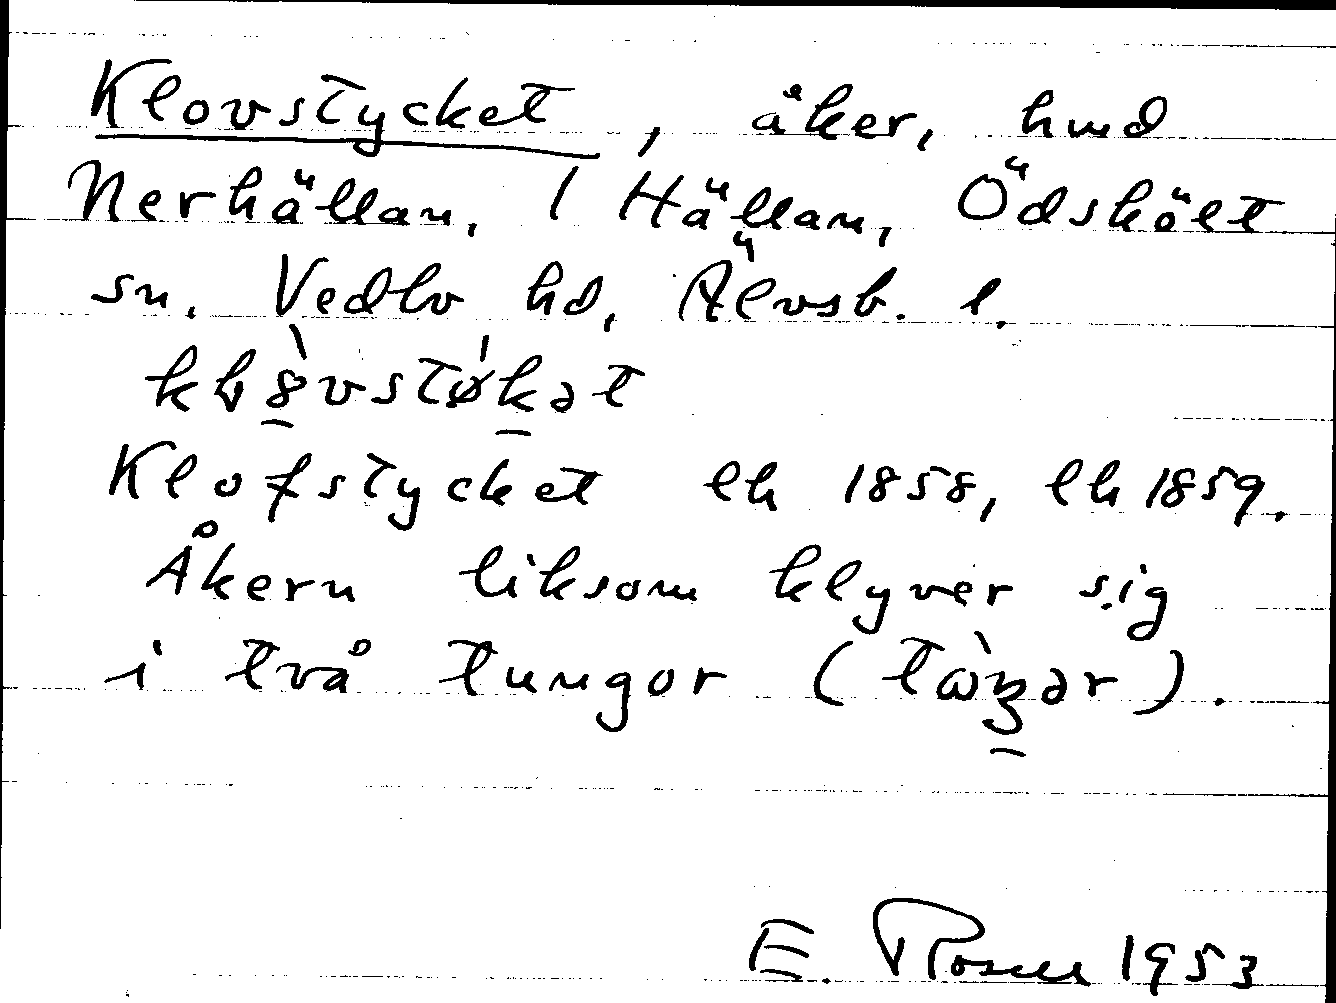 Klovstycket, åker, hmd
Nerhällan, 1 Hällan, Ödskölt
sn. Vedbo hd, Älvsb. l.
Klofstycket lh 1858, lh 1859.
Åkern liksom klyver sig
i två tungor
E. Rosell 1953